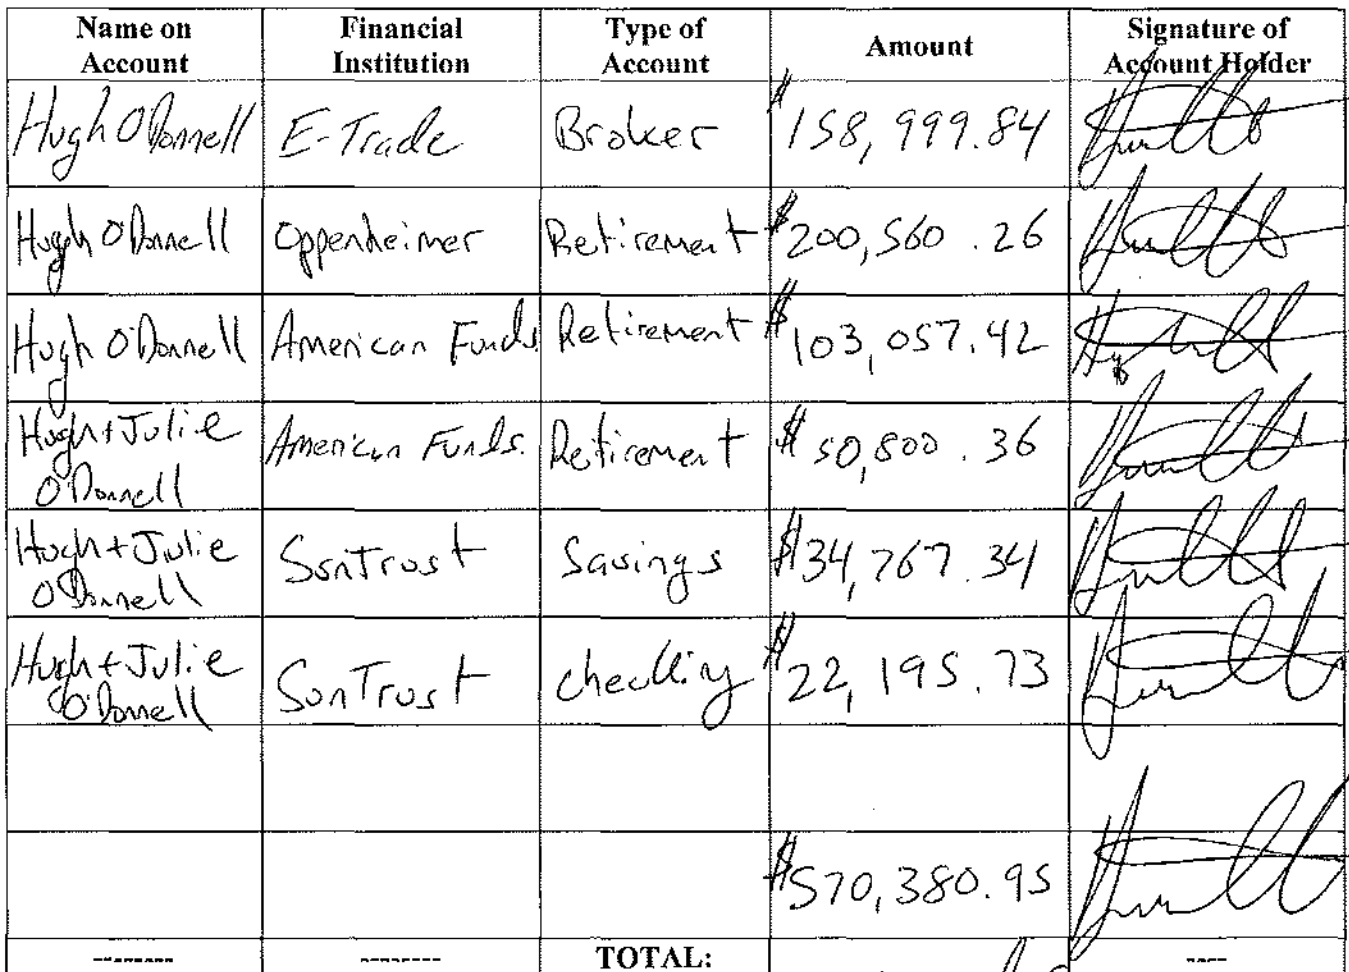 Name on Account | Financial Institution | Type of Account | Amount | Signature of Account Holder
Hugh O'Donnell | E-Trade | Broker | $158,999.84
Hugh O'Donnell | Oppenheimer | Retirement | $200,560.26
Hugh O'Donnell | American Funds | Retirement | $103,057.42
Hugh + Julie O'Donnell | American Funds. | Retirement | $50,800.36
Hugh + Julie O'Donnell | SunTrust | Savings | $34,767.34
Hugh + Julie O'Donnell | SunTrust | checking | $22,195.73
$570,380.95
TOTAL: